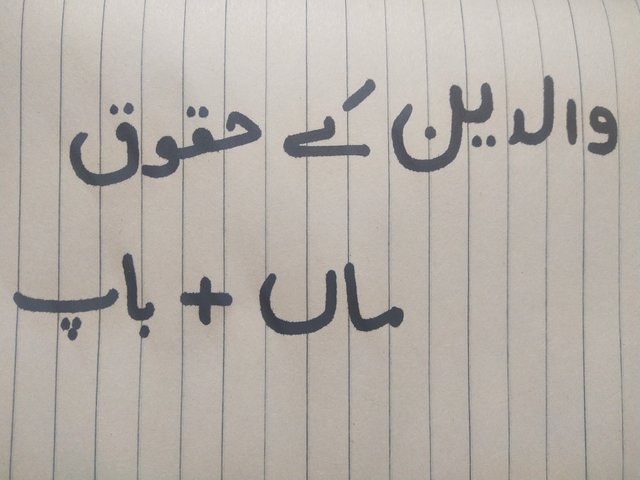 والدین کے حقوق
ماں + باپ